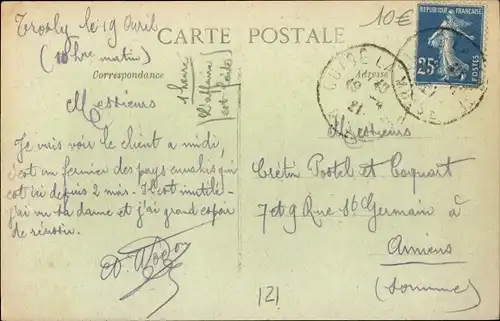 Trosly le 19 Avril
(10 hre matin)
10€
CARTE POSTALE
REPUBLIQUE FRANÇAISE
25c
POSTES
Correspondance
Adresse
1 heure
l'affaire
est faite
Messieurs
Je vais voir le client a midi,
c'est un fermier des pays envahis qui
est ici depuis 2 mois. Il est mutilé -
j'ai vu sa dame et j'ai grand espoir
de réussir.
Messieurs
Crétin Postel et Coquart
7 et 9 Rue St Germain à
Amiens
(Somme)
121